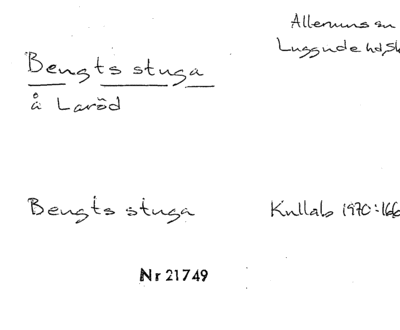 Allerums sn
Luggude hd, Sk
Bengts stuga
å Laröd
Bengts stuga
Kullab 1970:166
Nr 21749